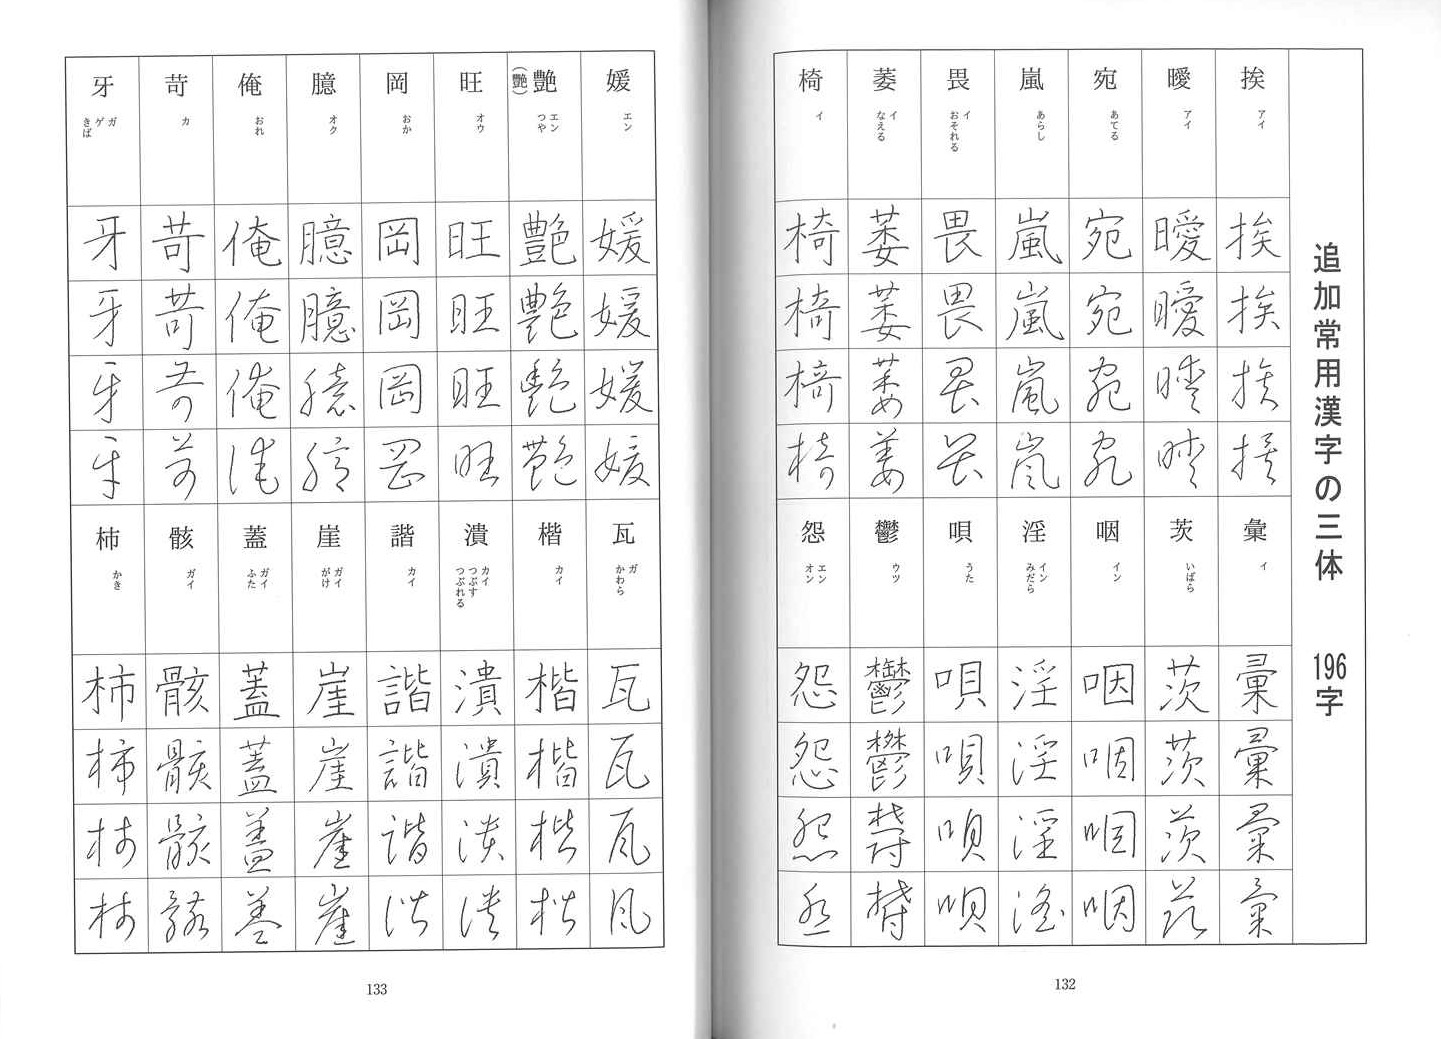 追加常用漢字の三体 196字
挨
アイ
挨挨挨挨
曖
アイ
曖曖曖曖
宛
あてる
宛宛宛宛
嵐
あらし
嵐嵐嵐嵐
畏
イ
おそれる
畏畏畏畏
萎
イ
なえる
萎萎萎萎
椅
イ
椅椅椅椅
彙
イ
彙彙彙彙
茨
いばら
茨茨茨茨
咽
イン
咽咽咽咽
淫
イン
みだら
淫淫淫淫
唄
うた
唄唄唄唄
鬱
ウツ
鬱鬱鬱鬱
怨
エン
オン
怨怨怨怨
132
媛
エン
媛媛媛媛
艶
(艷)
エン
つや
艶艶艶艶
旺
オウ
旺旺旺旺
岡
おか
岡岡岡岡
臆
オク
臆臆臆臆
俺
おれ
俺俺俺俺
苛
カ
苛苛苛苛
牙
ガ
ゲ
きば
牙牙牙牙
瓦
ガ
かわら
瓦瓦瓦瓦
楷
カイ
楷楷楷楷
潰
カイ
つぶす
つぶれる
潰潰潰潰
諧
カイ
諧諧諧諧
崖
ガイ
がけ
崖崖崖崖
蓋
ガイ
ふた
蓋蓋蓋蓋
骸
ガイ
骸骸骸骸
柿
かき
柿柿柿柿
133